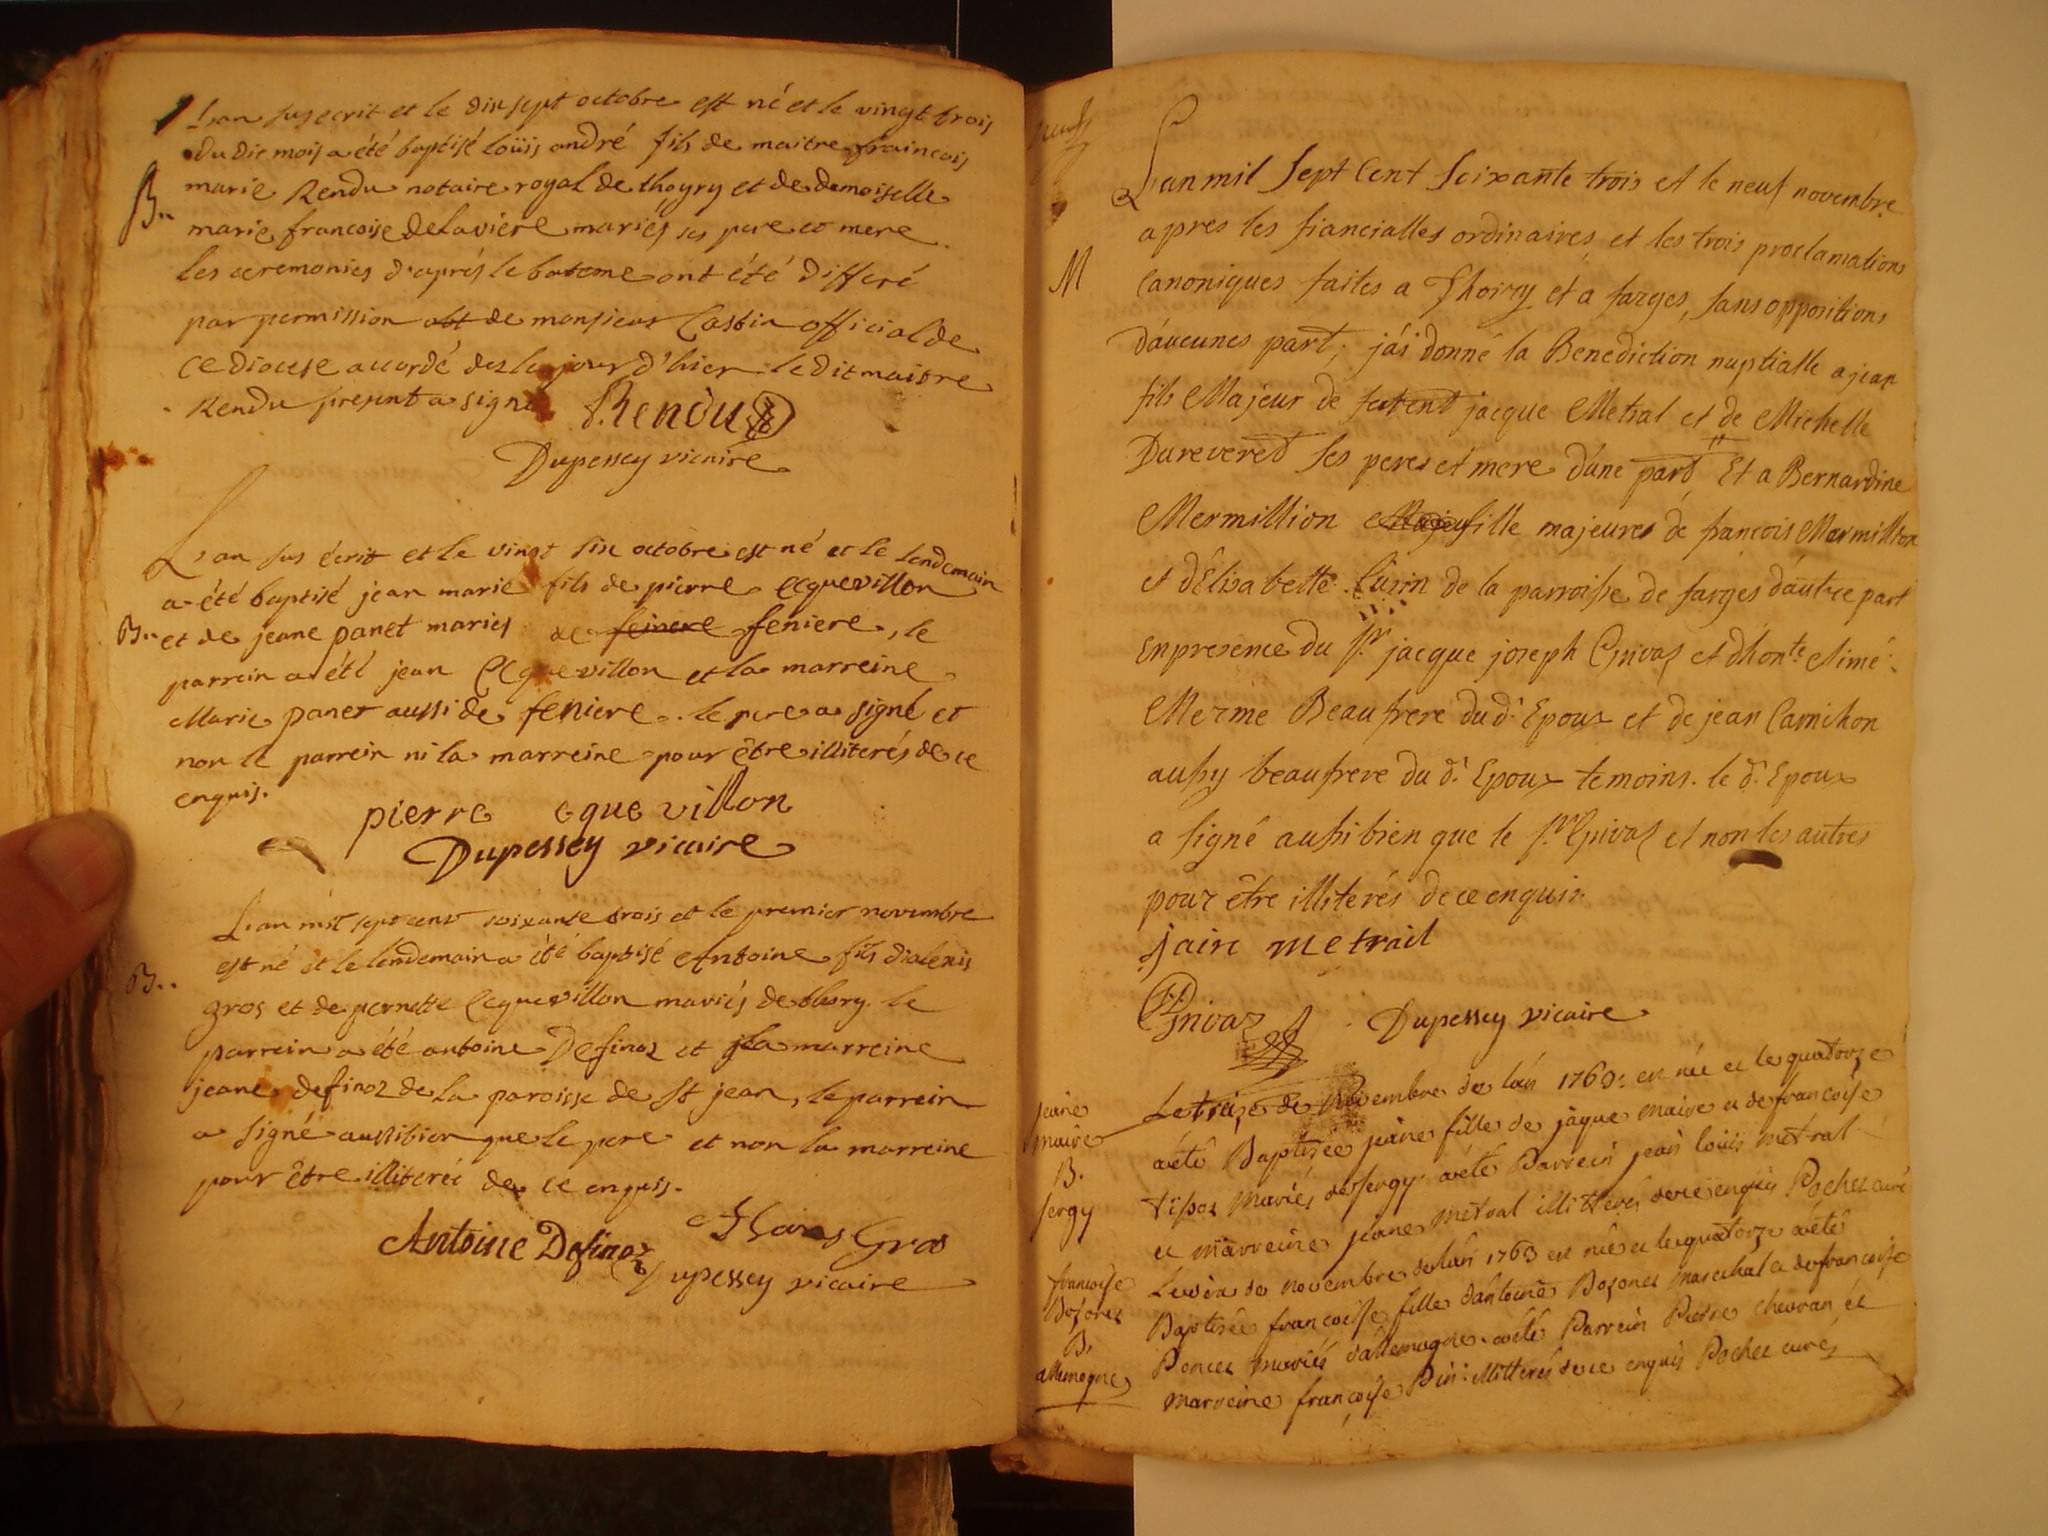 L'an susecrit et le dix sept octobre est né et le vingt trois
du dit mois a été baptisé loüis andré fils de maitre francois
B..
marie Rendu notaire royal de thoyry et de demoiselle
marie francoise delaviere mariés ses pere et mere
les ceremonies d'aprés le bateme ont été differé
par permission de monsieur Castin official de
ce diocese accordé des le jour d'hier le dit maitre
Rendu present a signé Rendu
Dupessey vicaire
L'an sus écrit et le vingt six octobre est né et le lendemain
a été baptisé jean marie fils de pierre Ecquevillon
B..
et de jeane panet mariés de feniere, le
parrein a été jean Ecquevillon et la marreine
Marie panet aussi de feniere. le pere a signé et
non le parrein ni la marreine pour être illiterés de ce
enquis.
pierre eque villon
Dupessey vicaire
L'an mil sept cent soixante trois et le premier novembre
est né et le lendemain a été baptisé Antoine fils d'alexis
B..
gros et de pernette Ecquevillon mariés de thoiry. le
parrein a été antoine Definoz et la marreine
jeane definoz de la paroisse de st jean, le parrein
a signé aussibien que le pere et non la marreine
pour être illiterée de ce enquis.
Antoine Definoz Gros
Dupessey vicaire
L'an mil sept cent soixante trois et le neuf novembre
apres les fiancialles ordinaires et les trois proclamations
M
canoniques faites a Thoiry et a farges, sans oppositions
d'aucunes part, j'ai donné la Benediction nuptialle a jean
fils Majeur de jacque Metral et de Michelle
Dureveret ses peres et mere d'une part Et a Bernardine
Mermillion fille majeure de françois Mermillion
et d'Elisabette de la parroisse de farges d'autre part
en presence du sr. jacque joseph Grivaz et d'hon.te Aimé
Merme Beaufrere du d. Epoux et de jean Camihon
aussy beaufrere du d. Epoux temoins. le d. Epoux
a signé aussibien que le sr. Grivaz et non les autres
pour être illiterés de ce enquis
metrail
Grivaz
Dupessey vicaire
jeane
maire
B.
sergy
Le treize de Novembre de l'an 1763 est née et le quatorze
a été Baptisée jeane fille de jaque maire et de francoise
mariés de Sergy a été Parrein jean loüis metral
et marreine jeane metral illitterés de ce enquis Pochet curé
francoise
Bozonet
B.
allemogne
Le de novembre de l'an 1763 est née et le quatorze a été
Baptisée francoise fille d'antoine Bozonet marechal et de francoise
Poncet mariés d'allemogne a été Parrein Pierre chevran et
marreine françoise illitterés de ce enquis Pochet curé